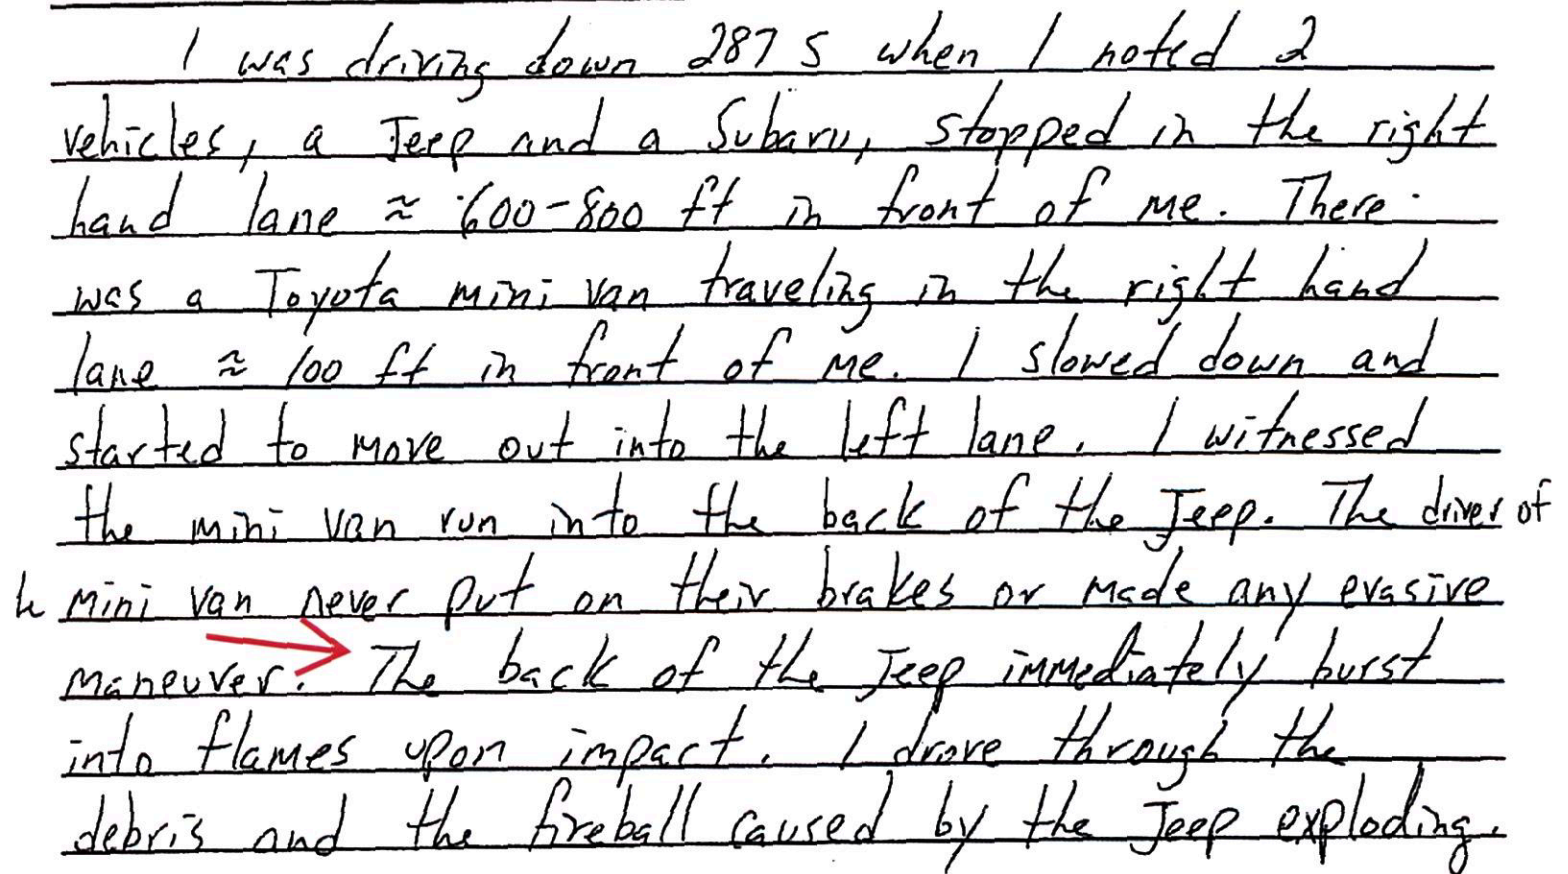 I was driving down 287 S when I noted 2
vehicles, a Jeep and a Subaru, stopped in the right
hand lane ≈ 600-800 ft in front of me. There
was a Toyota mini van traveling in the right hand
lane ≈ 100 ft in front of me. I slowed down and
started to move out into the left lane. I witnessed
the mini van run into the back of the Jeep. The driver of
mini van never put on their brakes or made any evasive
maneuver. The back of the Jeep immediately burst
into flames upon impact. I drove through the
debris and the fireball caused by the Jeep exploding.